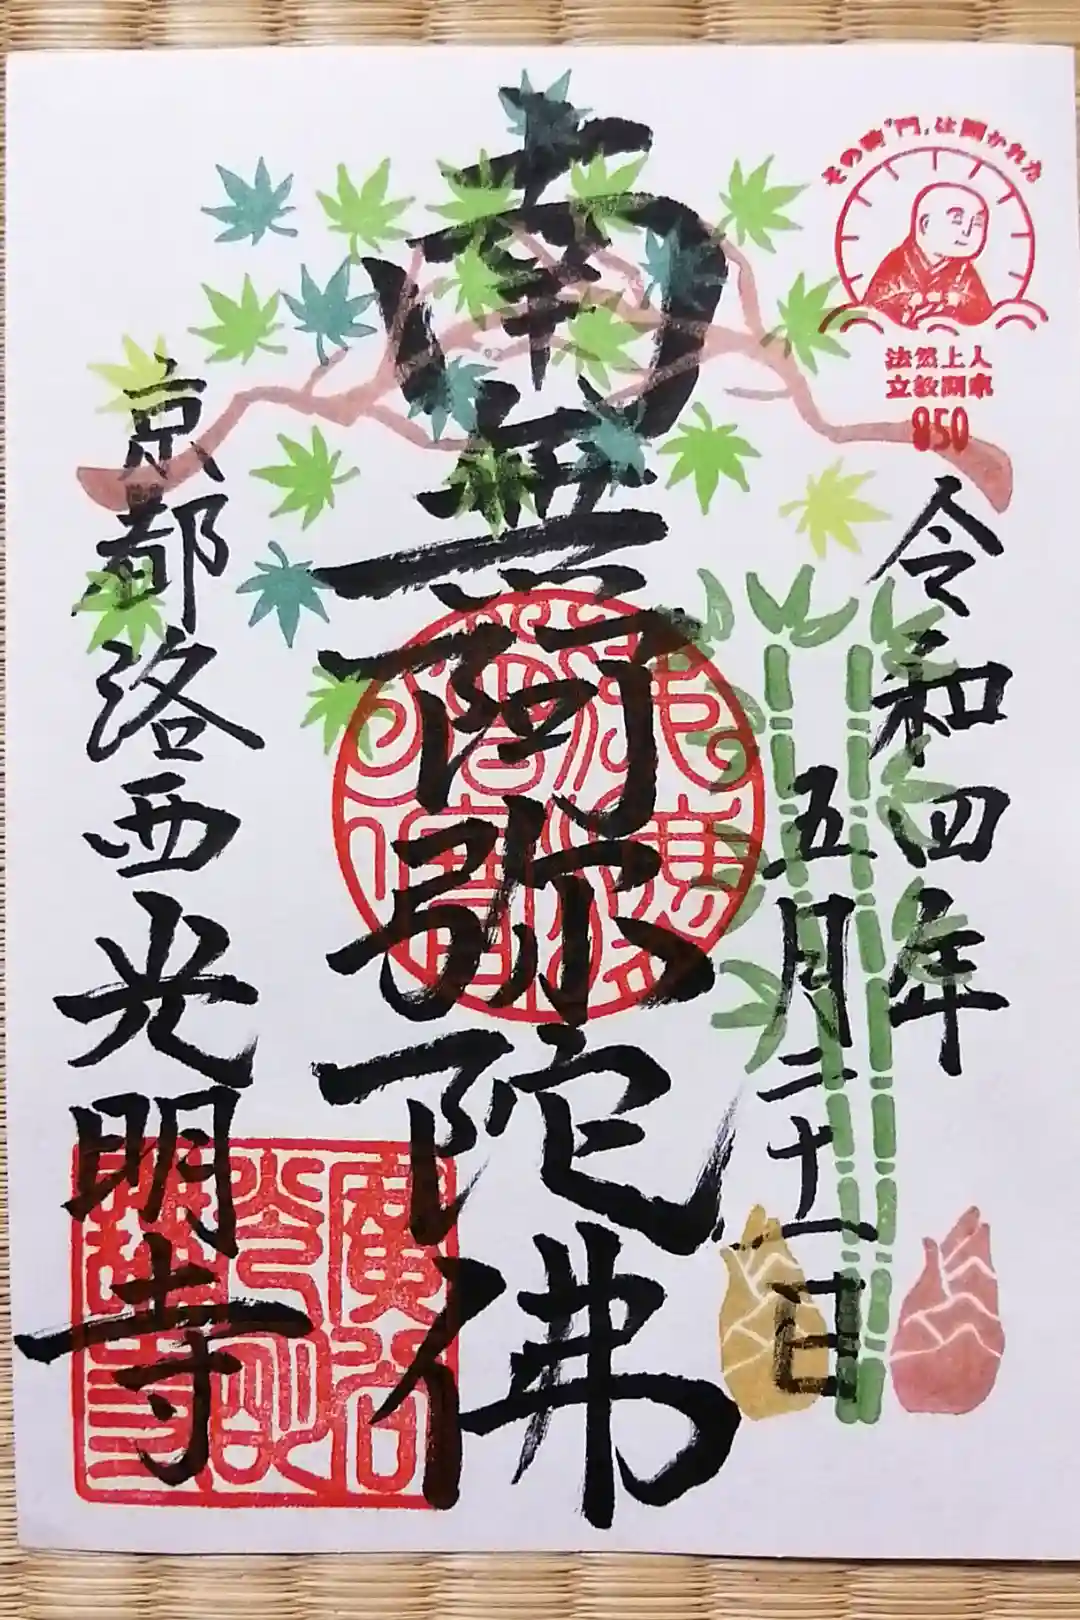 その時"門"は開かれた
法然上人
立教開宗
850
令和四年
五月二十一日
南無阿弥陀佛
京都洛西光明寺